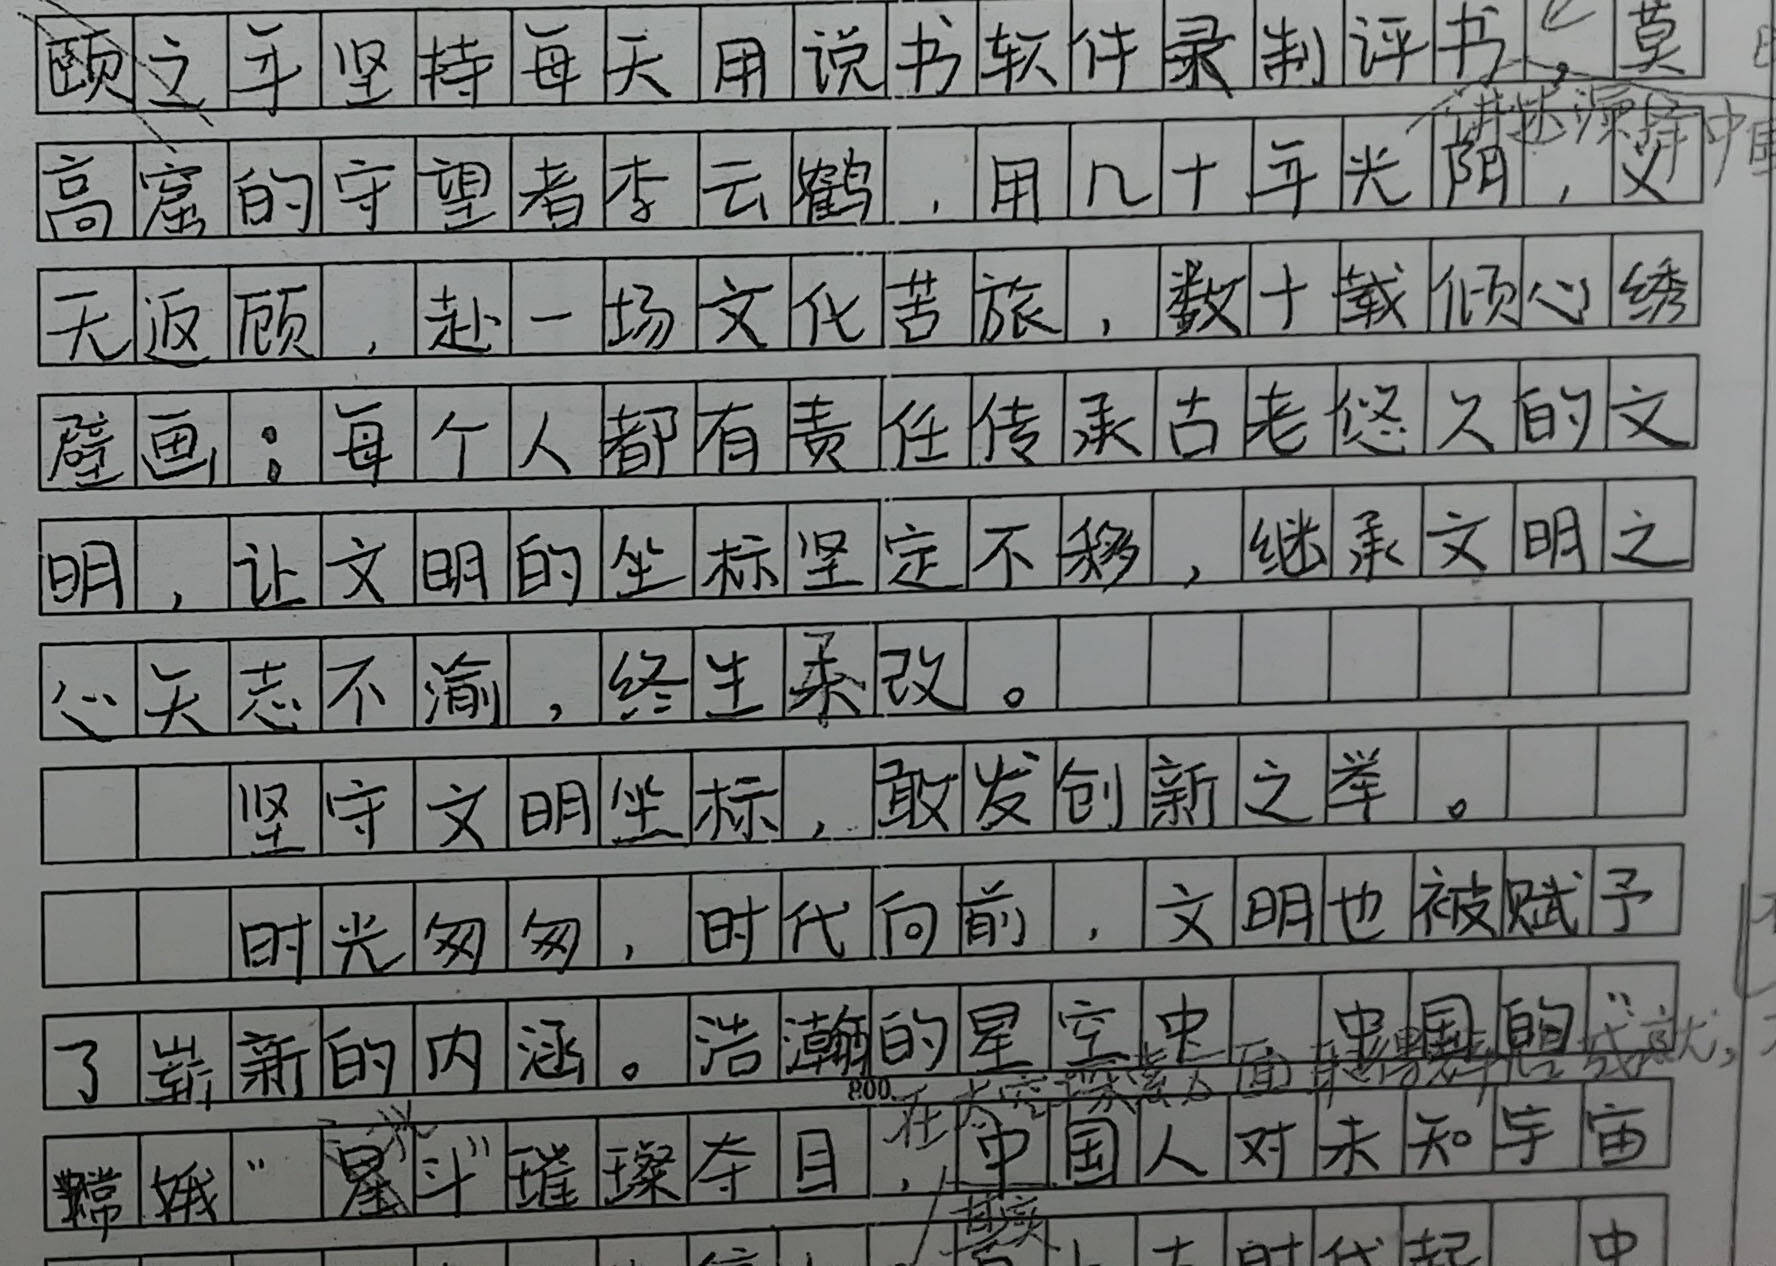 颐之年坚持每天用说书软件录制评书，莫
讲述源
高窟的守望者李云鹤，用几十年光阴，义
无返顾，赴一场文化苦旅，数十载倾心绣
壁画；每个人都有责任传承古老悠久的文
明，让文明的坐标坚定不移，继承文明之
心矢志不渝，终生未改。
坚守文明坐标，敢发创新之举。
时光匆匆，时代向前，文明也被赋予
了崭新的内涵。浩瀚的星空中 中国的“
800
在太空探索方面 成就，
嫦娥“星斗”璀璨夺目，中国人对未知宇宙
时代起 中